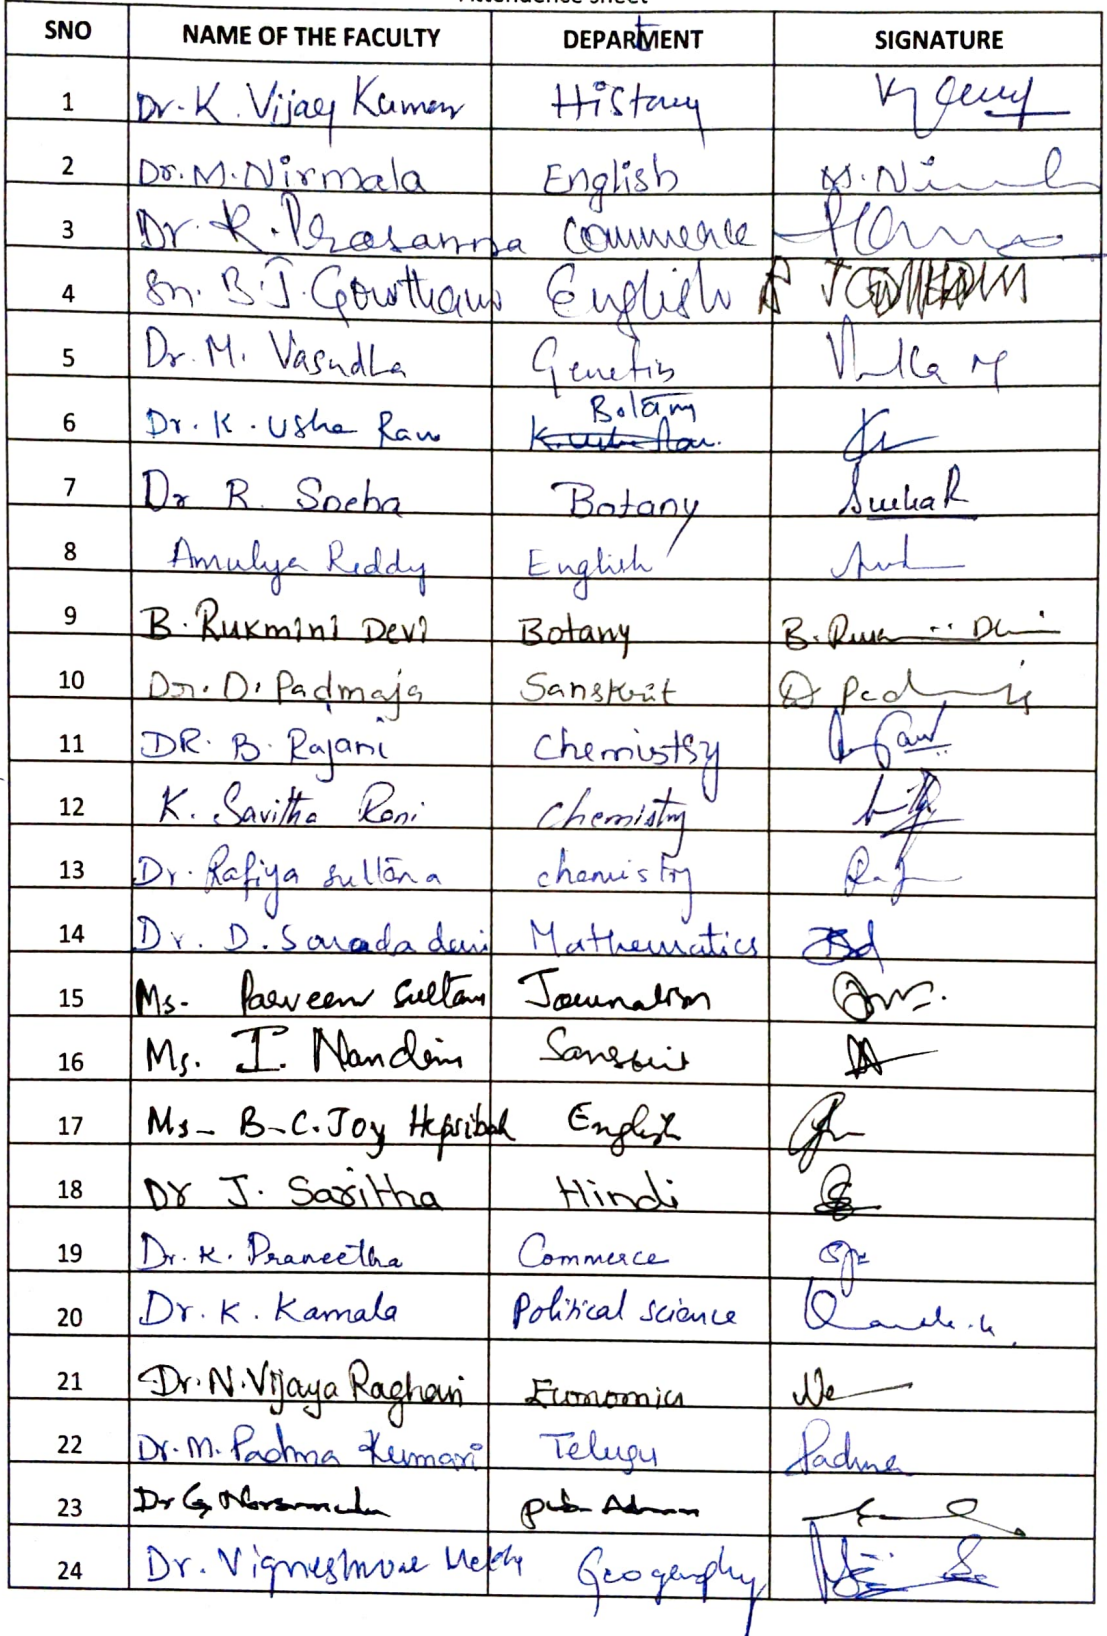 Attendence sheet
SNO NAME OF THE FACULTY DEPARTMENT SIGNATURE
1 Dr. K. Vijay Kumar History
2 Dr. M. Nirmala English M. Nirmala
3 Dr. R. Prasanna Commerce
4 Sri. B.J. Gowtham English
5 Dr. M. Vasudha Genetics
6 Dr. K. Usha Rani Botany
7 Dr R. Sneha Botany Sneha R
8 Amulya Reddy English
9 B. Rukmini Devi Botany B. Rukmini Devi
10 Dr. D. Padmaja Sanskrit D Padmaja
11 DR. B. Rajani Chemistry
12 K. Savitha Rani Chemistry
13 Dr. Rafiya Sultana chemistry
14 Dr. D. Sarada devi Mathematics
15 Ms. Parveen Sultana Journalism
16 Ms. I. Nandini Sanskrit
17 Ms. B.C. Joy Hepsibah English
18 Dr J. Saritha Hindi
19 Dr. K. Praneetha Commerce
20 Dr. K. Kamala Political science
21 Dr. N. Vijaya Raghavi Economics
22 Dr. M. Padma Kumari Telugu Padma
23 Dr G Pub. Admn
24 Dr. Vigneshwar Reddy Geography